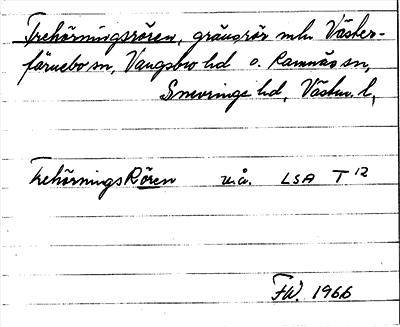 Trehörningsrören, gränsrör mln Väster-
färnebo sn, Vangsbro hd o. Ramnäs sn,
Snevringe hd, Västm. l,
TrehörningsRören u.å. LSA T 12
FW. 1966